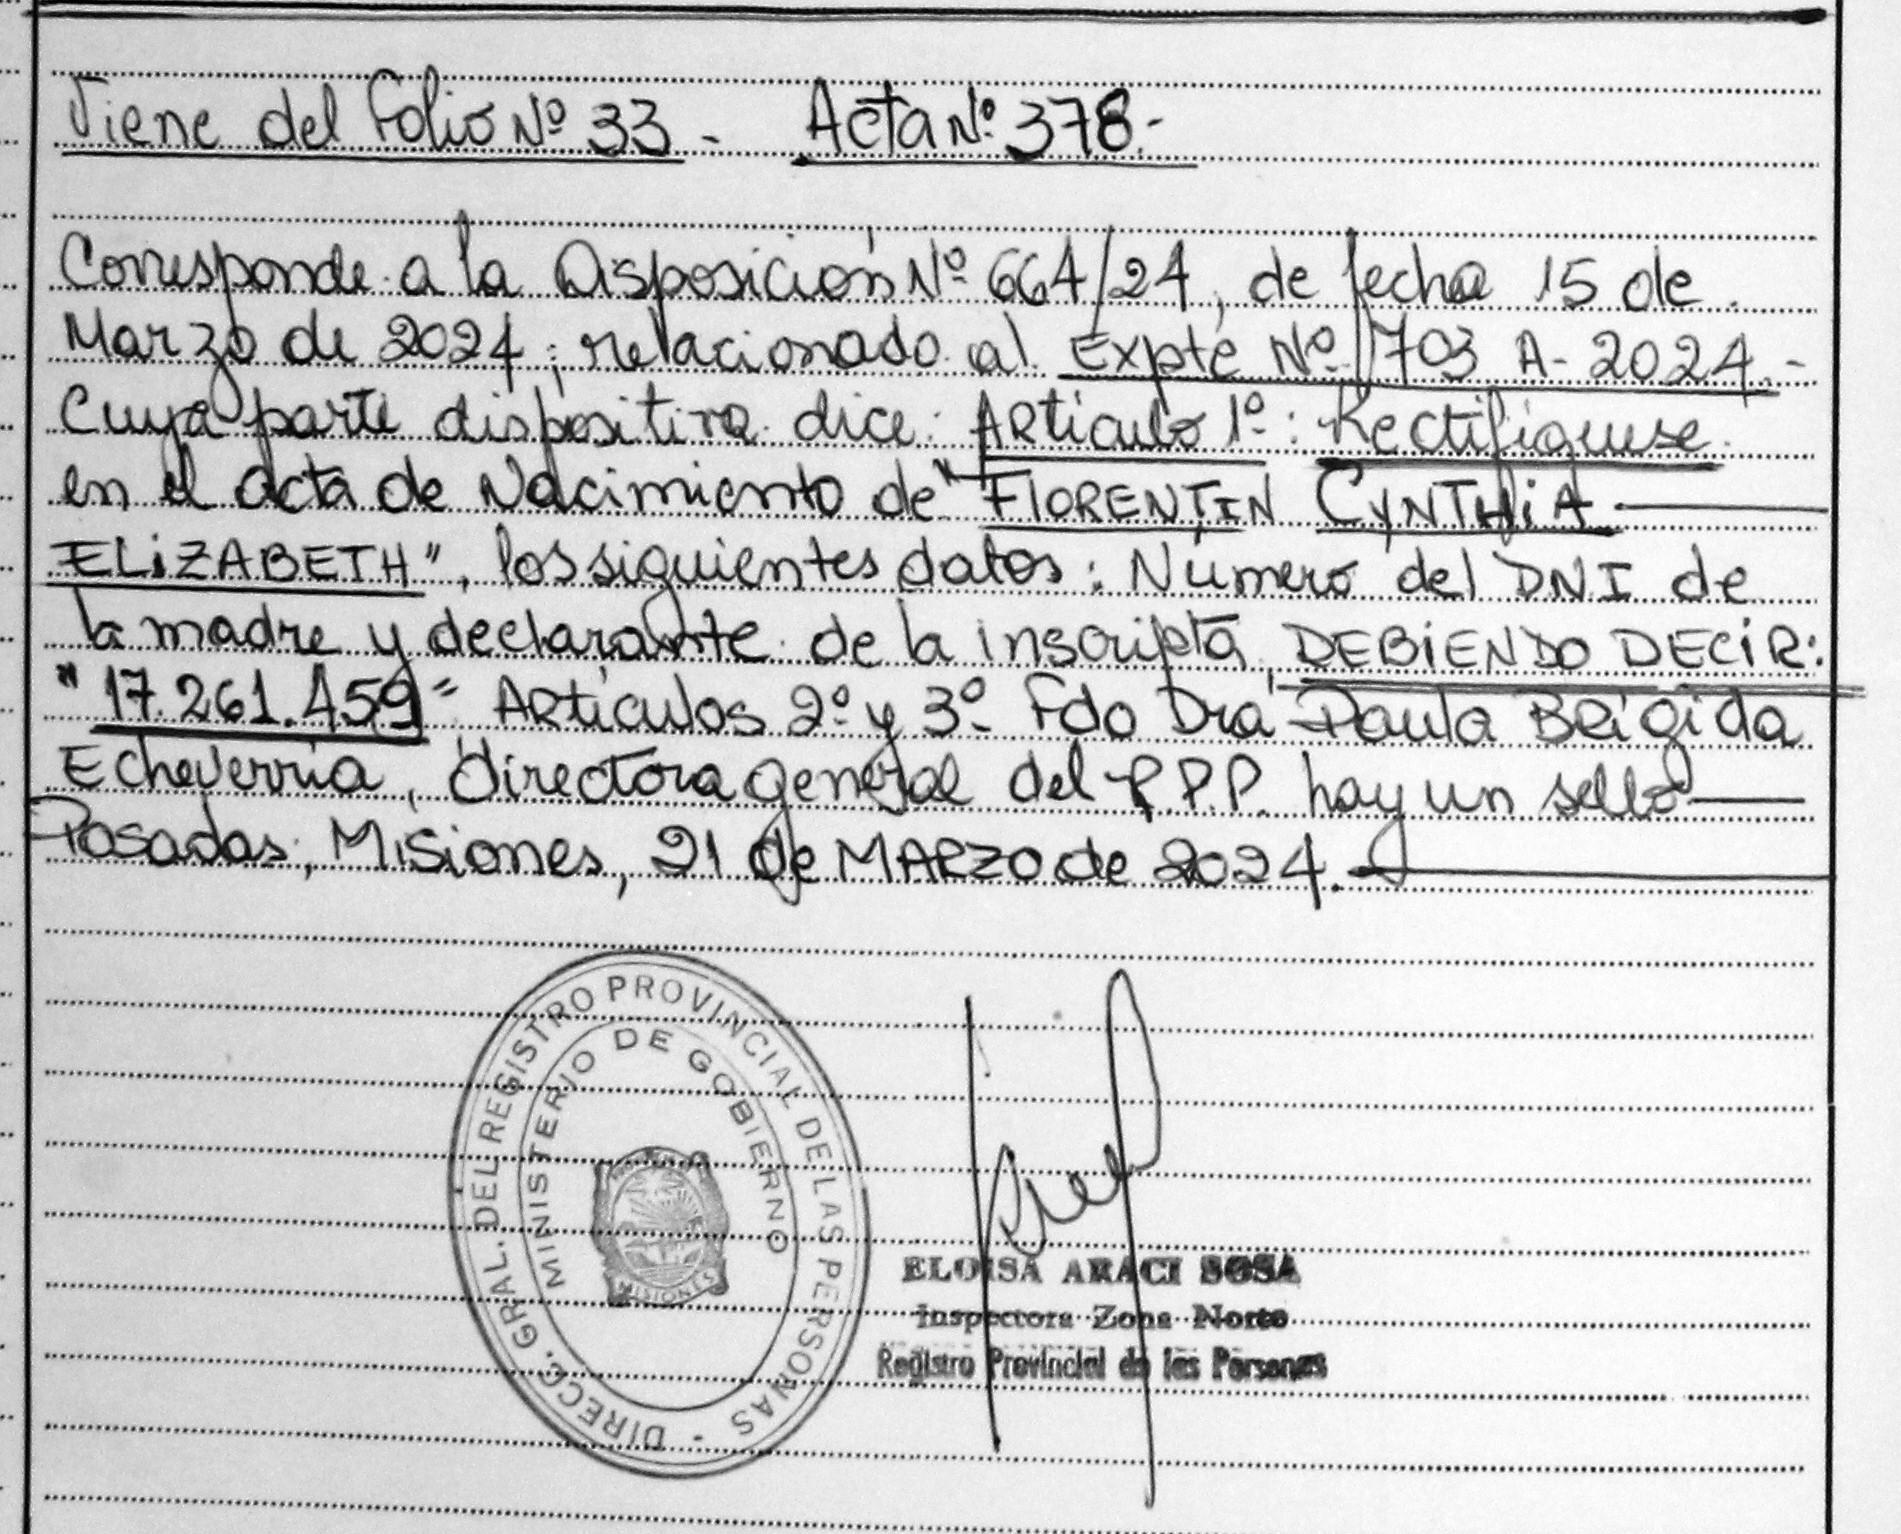 Viene del folio Nº 33 - Acta Nº 378.-
Corresponde a la Disposición Nº 664/24, de fecha 15 de
Marzo de 2024; relacionado al Expte Nº 1703 A- 2024.-
Cuya parte dispositiva dice: Artículo 1º: Rectifíquese
en el acta de Nacimiento de "FLORENTIN CYNTHIA
ELIZABETH", los siguientes datos: Número del DNI de
la madre y declarante de la inscripta, DEBIENDO DECIR:
"17.261.459" Artículos 2º y 3º Fdo Dra Paula Brigida
Echeverria, directora general del R.P.P. hay un sello
Posadas, Misiones, 21 de MARZO de 2024.
DIRECC. GRAL. DEL REGISTRO PROVINCIAL DE LAS PERSONAS -
MINISTERIO DE GOBIERNO
MISIONES
ELOISA ARACI SOSA
Inspectora Zona Norte
Registro Provincial de las Personas